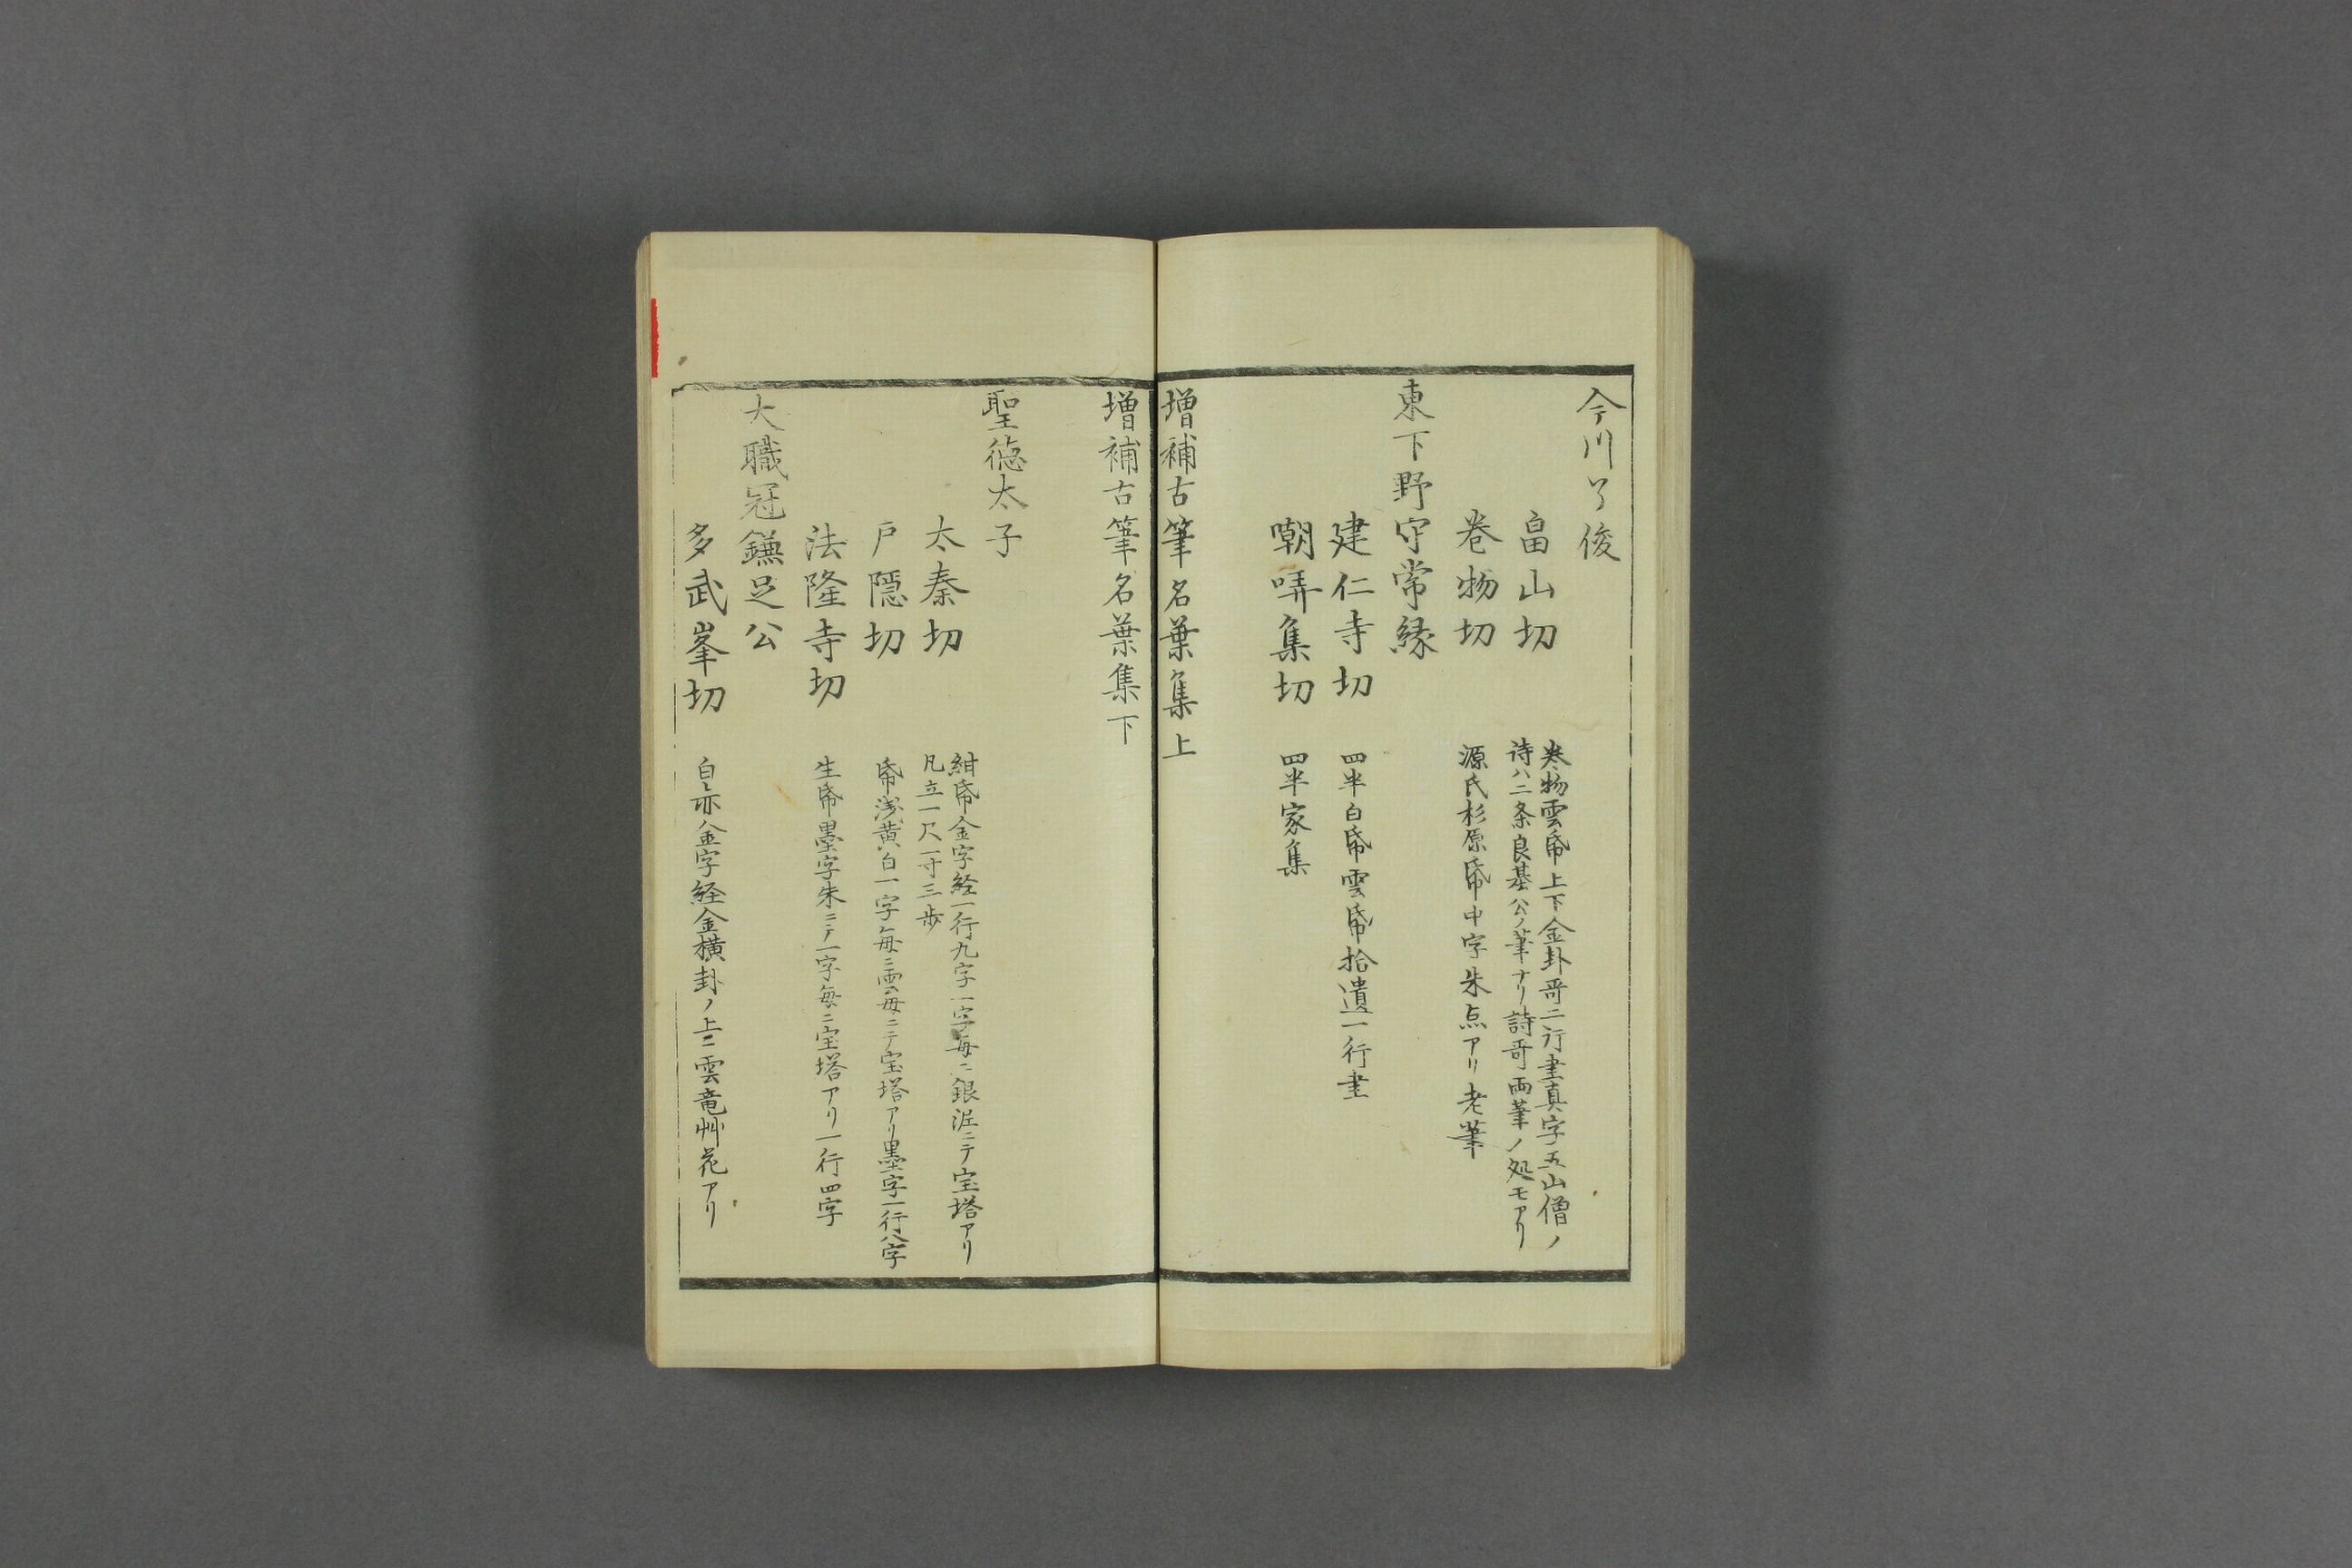 今川了俊
畠山切
巻物雲帋上下金卦哥二行書真字五山僧ノ
詩ハ二条良基公ノ筆ナリ詩哥両筆ノ処モアリ
巻物切
源氏杉原帋中字朱点アリ老筆
東下野守常縁
建仁寺切
四半白帋雲帋拾遺一行書
嘲哢集切
四半家集
増補古筆名葉集上
増補古筆名葉集下
聖徳太子
太秦切
紺帋金字経一行九字一字毎ニ銀泥ニテ宝塔アリ
凡立一尺一寸三歩
戸隠切
帋浅黄白一字毎ニ雲母ニテ宝塔アリ墨字一行八字
法隆寺切
生帋墨字朱ニテ一字毎ニ宝塔アリ一行四字
大職冠鎌足公
多武峯切
白赤金字経金横卦ノ上ニ雲竜艸花アリ